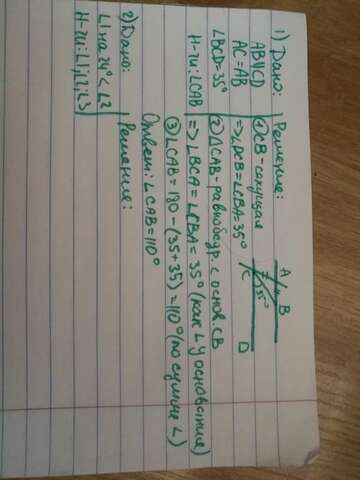 1) Дано: Решение:
AB∥CD ① CB-секущая
AC=AB => ∠DCB=∠CBA=35°
∠BCD=35° ② △CAB-равнобедр. с основ. CB
Н-ти: ∠CAB => ∠BCA=∠CBA=35° (как ∠ у основания)
③ ∠CAB=180-(35+35)=110° (по сумме ∠)
Ответ: ∠CAB=110°
2) Дано: Решение:
∠1 на 24° < ∠2
Н-ти: ∠1;∠2;∠3
A B
C 35° D